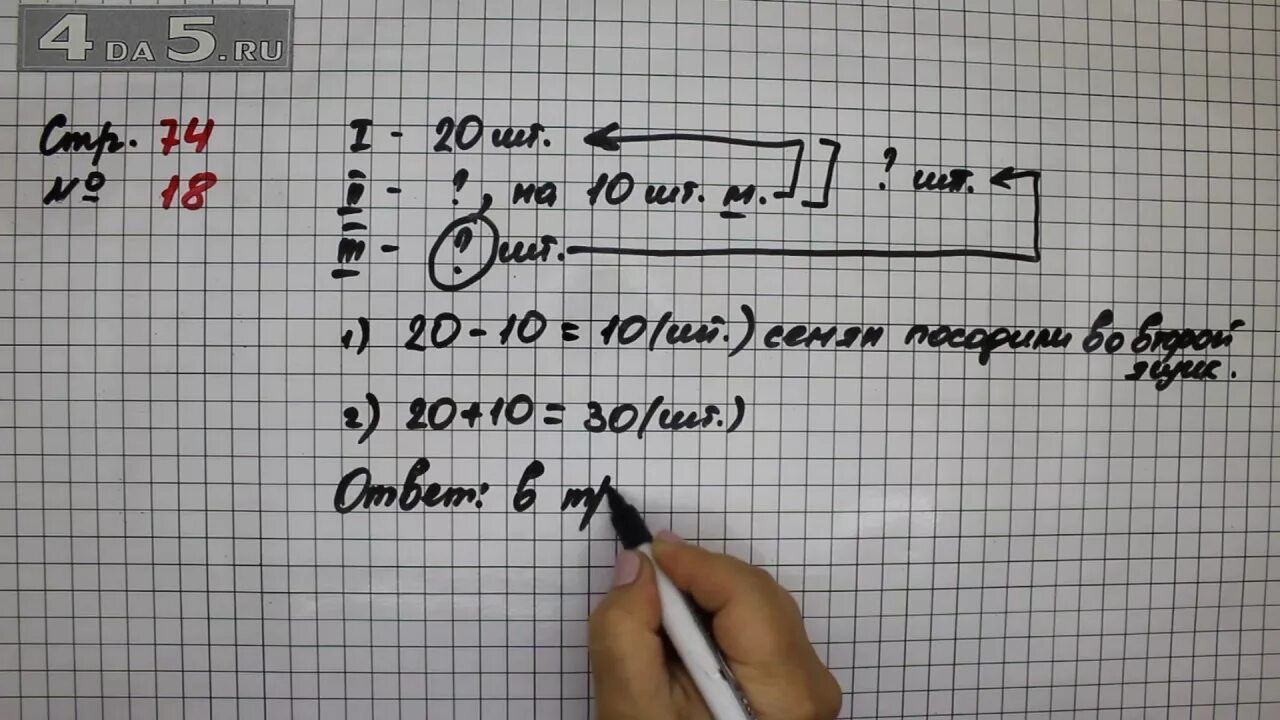 4DA5.RU
Стр. 74
№ 18
I - 20 шт.
II - ?, на 10 шт. м.
? шт.
III - ? шт.
1) 20 - 10 = 10 (шт.) семян посадили во второй
ящик.
2) 20 + 10 = 30 (шт.)
Ответ: в тр